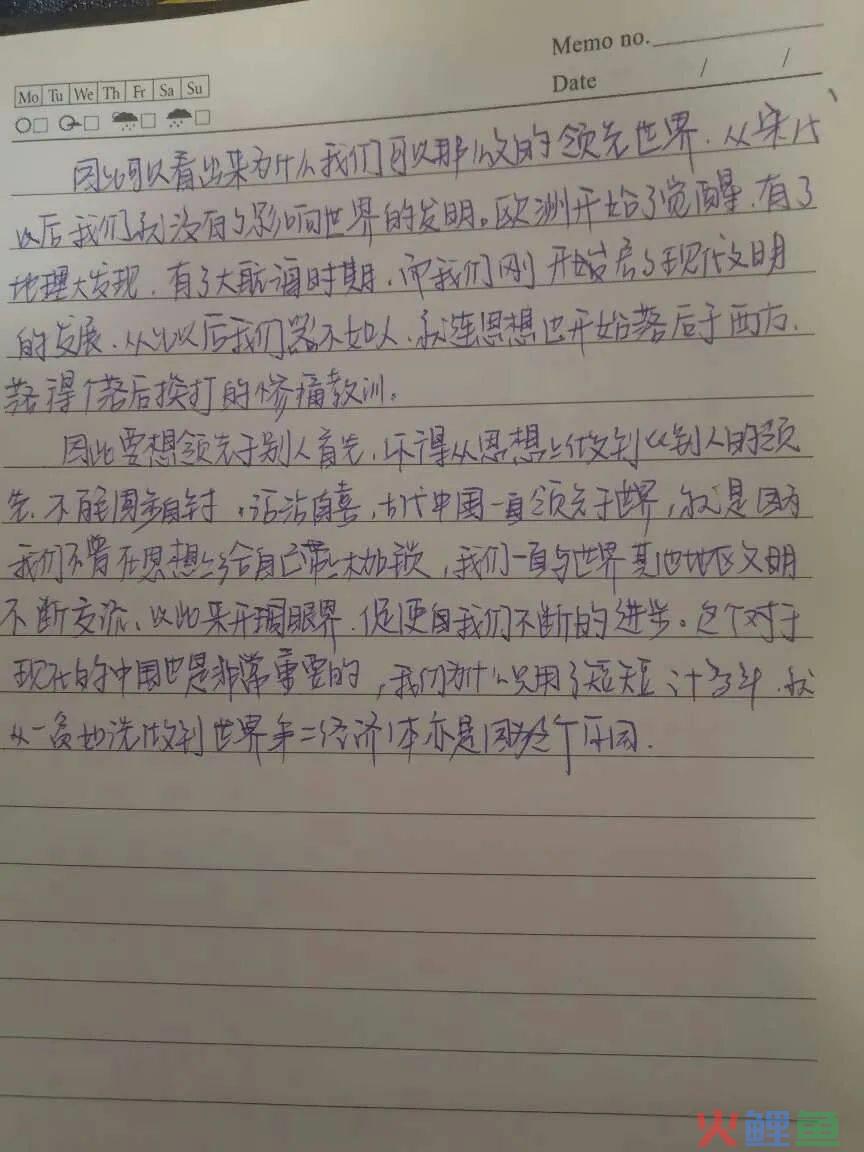 Memo no.
Date / /
Mo Tu We Th Fr Sa Su
因此可以看出来为什么我们可以那么久的领先世界.从宋代
以后我们就没有了影响世界的发明。欧洲开始了觉醒.有了
地理大发现.有了大航海时期.而我们刚开始了现代文明
的发展.从此以后我们器不如人.就连思想也开始落后于西方.
落得个落后挨打的惨痛教训。
因此要想领先于别人首先,还得从思想上做到从别人的领
先.不能固步自封,沾沾自喜,古代中国一直领先于世界,就是因为
我们不曾在思想上给自己带上枷锁,我们一直与世界其他地区文明
不断交流、以此来开阔眼界.促使自我们不断的进步。这个对于
现在的中国也是非常重要的,我们为什么只用了短短几十多年.就
从一负地洗做到世界第二经济体亦是因为这个原因.
火鲤鱼